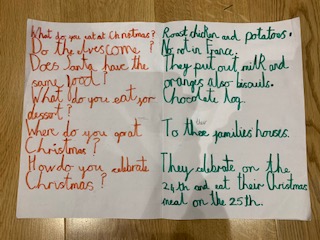 What do you eat at Christmas?
Do the elves come?
Does Santa have the
same food?
What do you eat for
dessert?
Where do you go at
Christmas?
How do you celebrate
Christmas?
Roast chicken and potatoes.
No not in France.
They put out milk and
oranges also biscuits.
Chocolate log.
To there families houses.
They celebrate on the
24th and eat their Christmas
meal on the 25th.